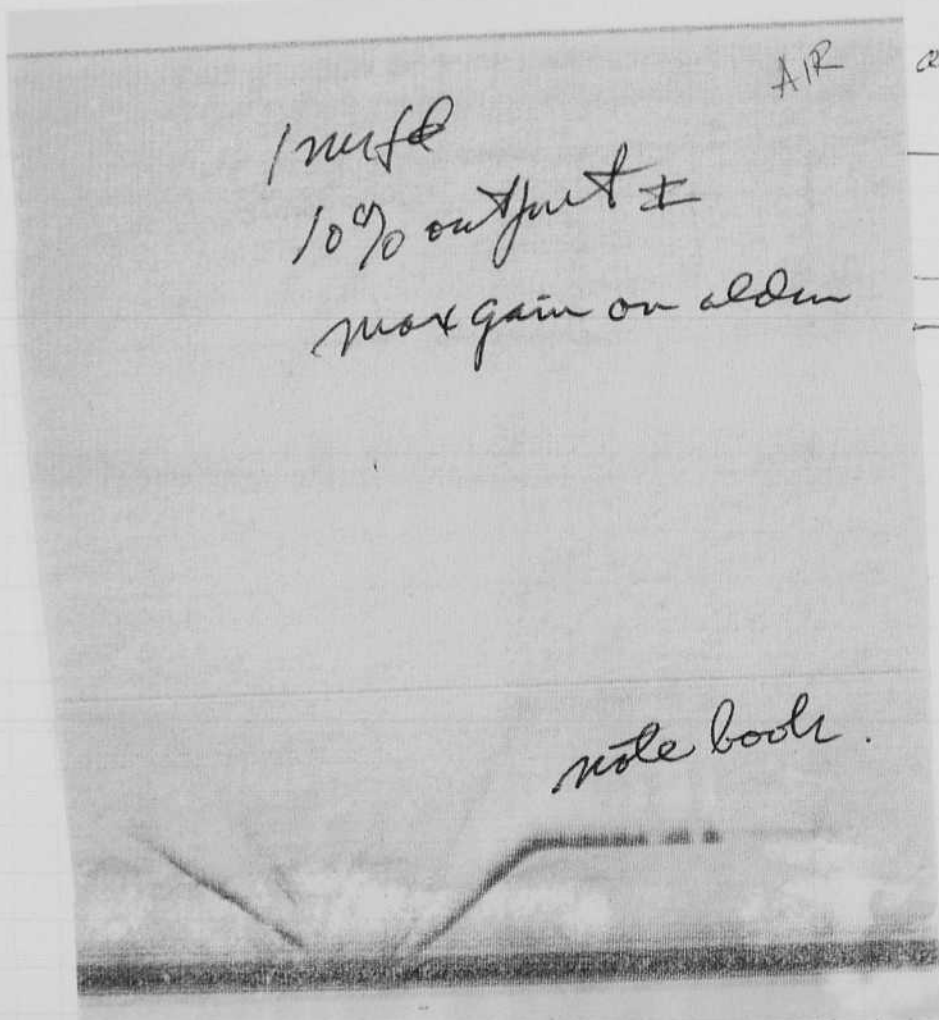 AIR
1 mufd
10% output I
max gain on alden
note book.